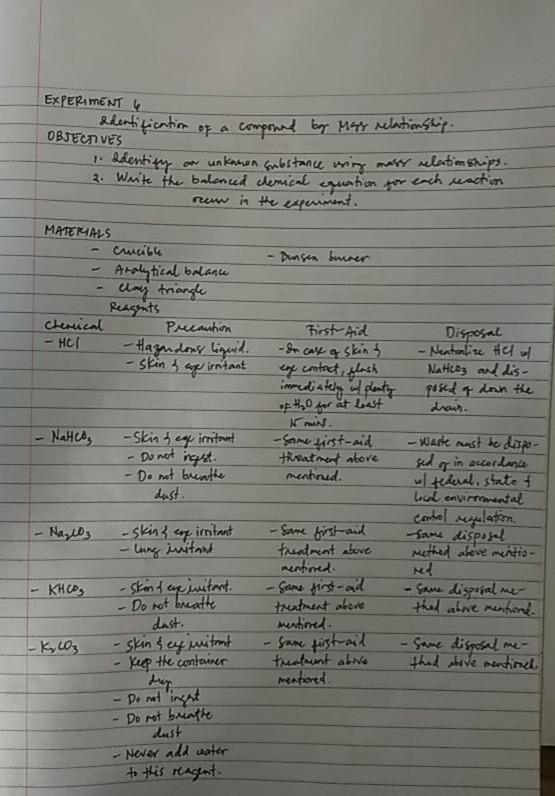 EXPERIMENT 6
Identification of a compound by Mass relationship.
OBJECTIVES
1. Identify an unknown substance using mass relationships.
2. Write the balanced chemical equation for each reaction
occur in the experiment.
MATERIALS
- Crucible - Bunsen burner
- Analytical balance
- Clay triangle
Reagents
Chemical Precaution First-Aid Disposal
- HCl - Hazardous liquid. - In case of skin & - Neutralize HCl w/
- Skin & eye irritant eye contact, flush NaHCO3 and dis-
immediately w/ plenty posed of down the
of H2O for at least drain.
15 mins.
- NaHCO3 - Skin & eye irritant - Same first-aid - Waste must be dispo-
- Do not ingest. treatment above sed of in accordance
- Do not breathe mentioned. w/ federal, state &
dust. local environmental
control regulation.
- Na2CO3 - Skin & eye irritant - Same first-aid - Same disposal
- Lung irritant treatment above method above mentio-
mentioned. ned
- KHCO3 - Skin & eye irritant. - Same first-aid - Same disposal me-
- Do not breathe treatment above thod above mentioned.
dust. mentioned.
- K2CO3 - Skin & eye irritant - Same first-aid - Same disposal me-
- Keep the container treatment above thod above mentioned.
dry mentioned.
- Do not ingest
- Do not breathe
dust
- Never add water
to this reagent.